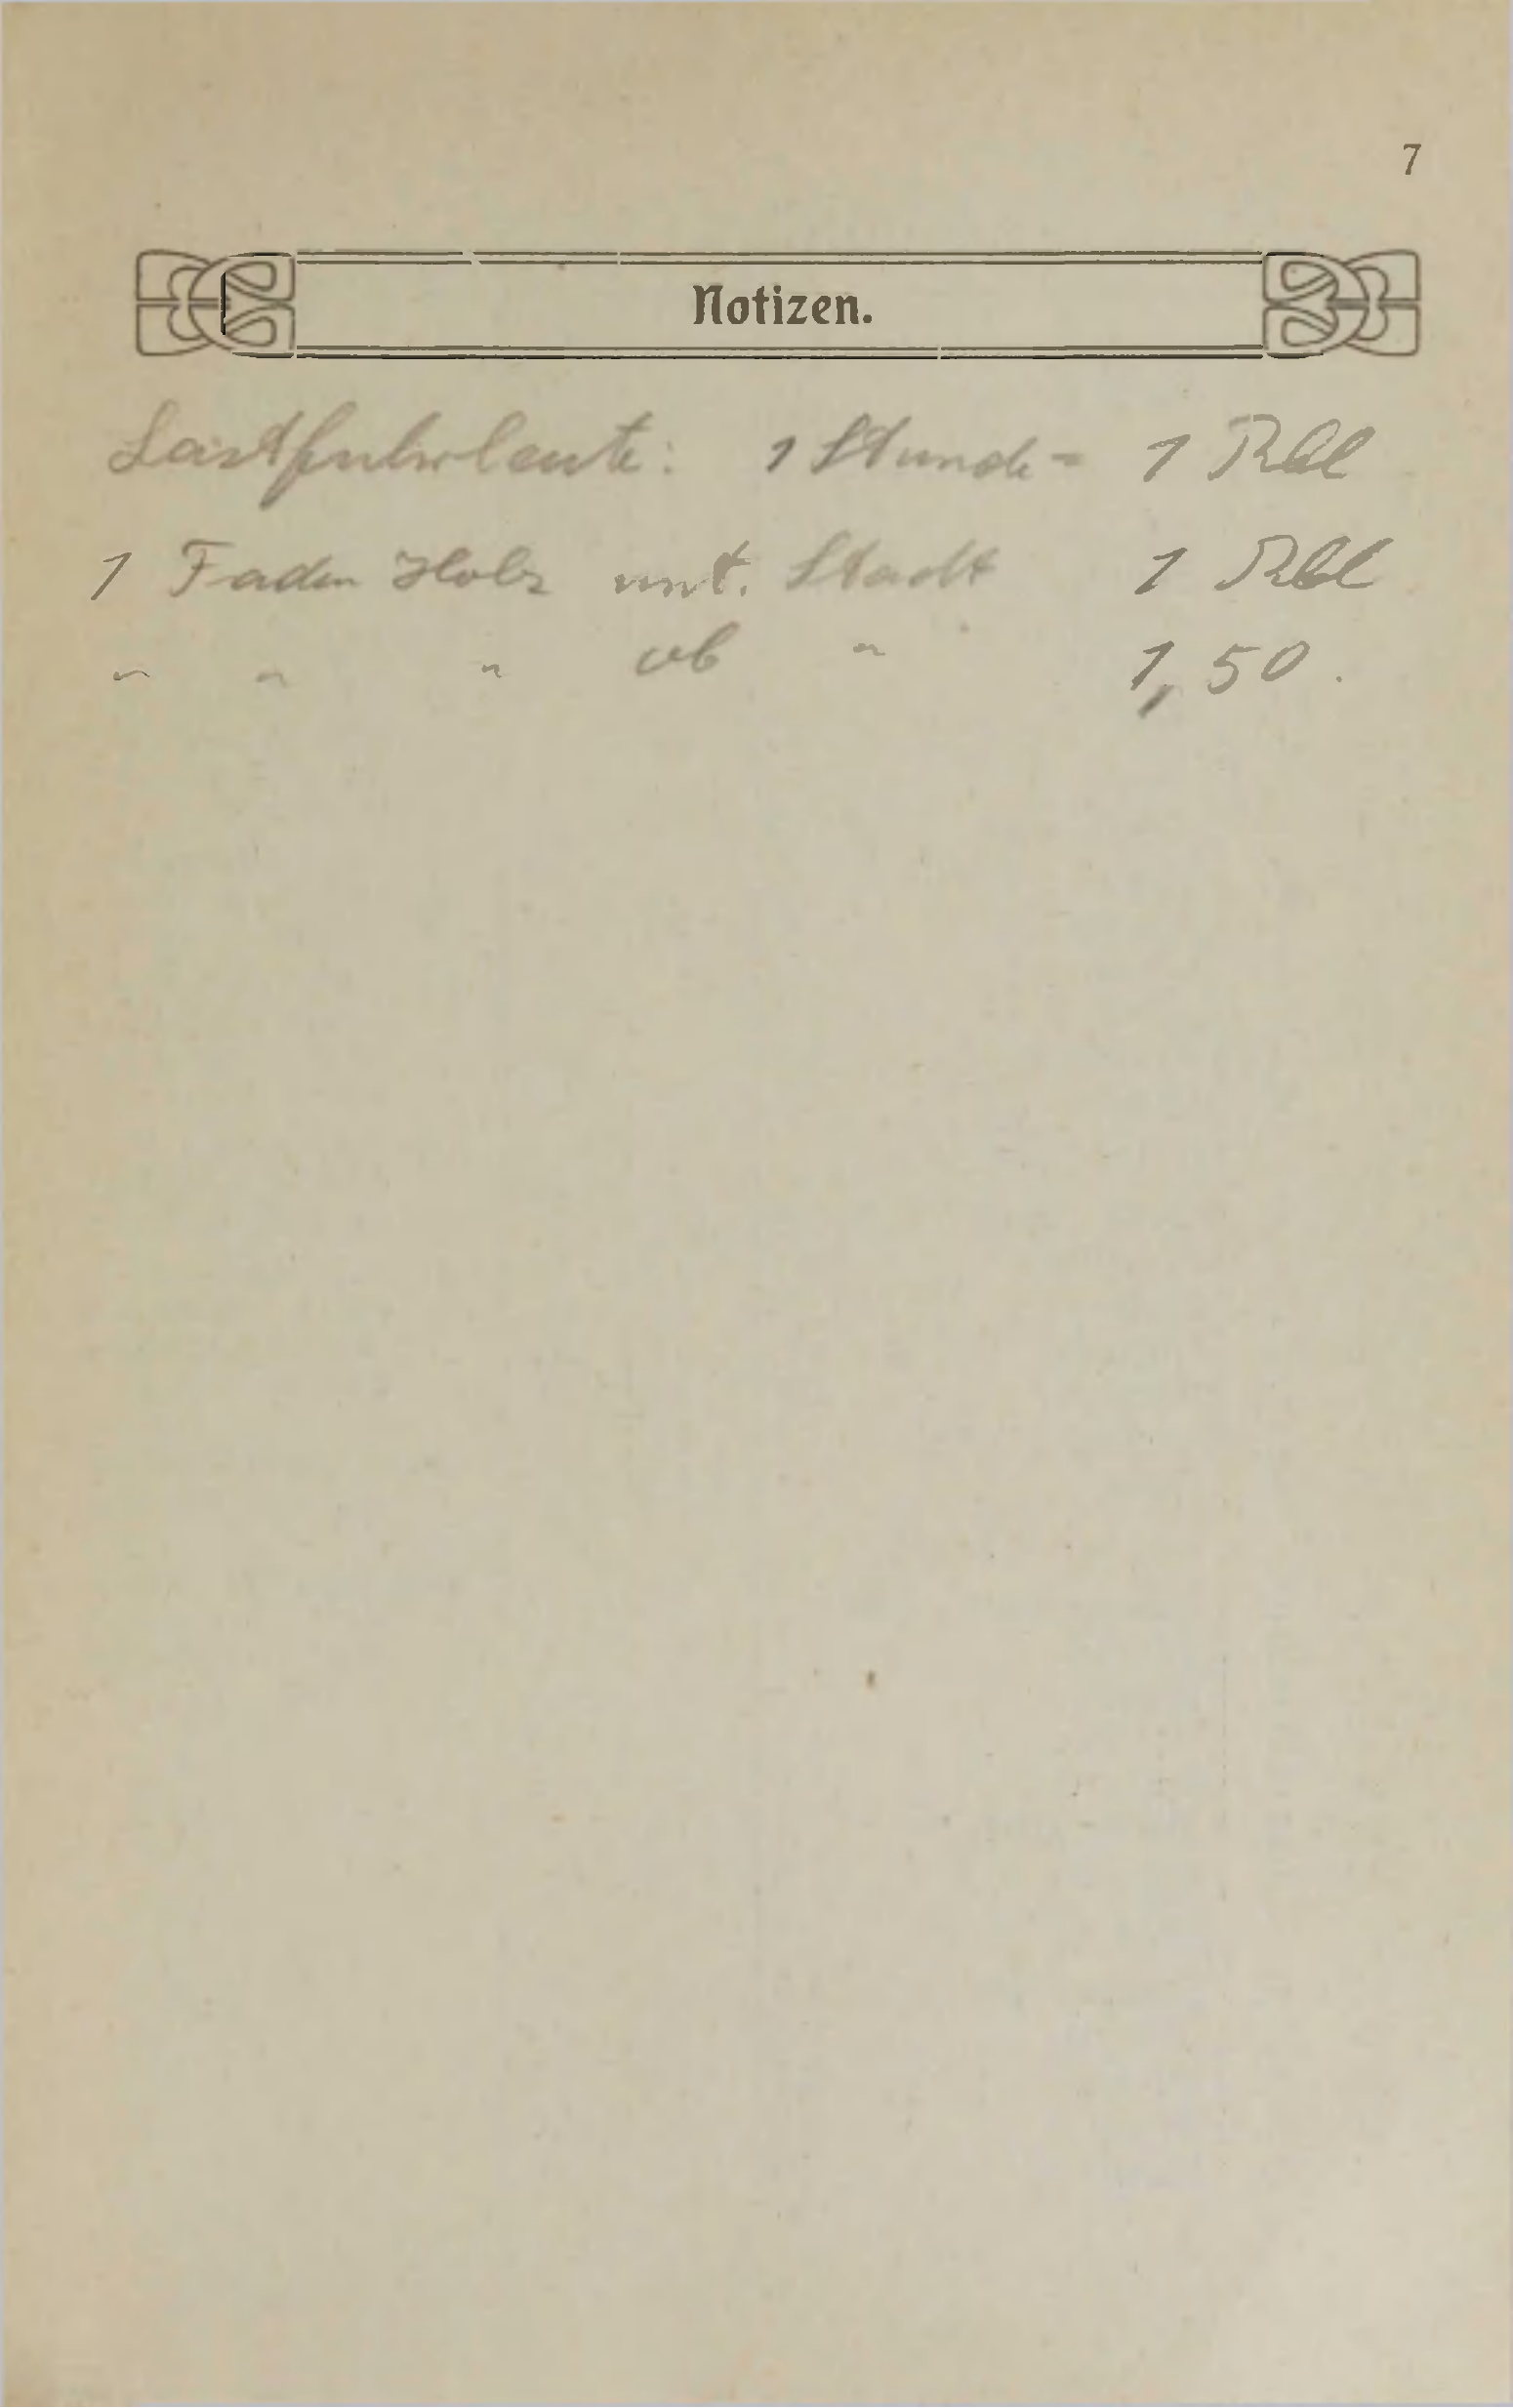 7
Notizen.
Lastfuhrleute: 1 Stunde = 1 Rbl
1 Faden Holz unt. Stadt 1 Rbl
" " " ob " 1,50.